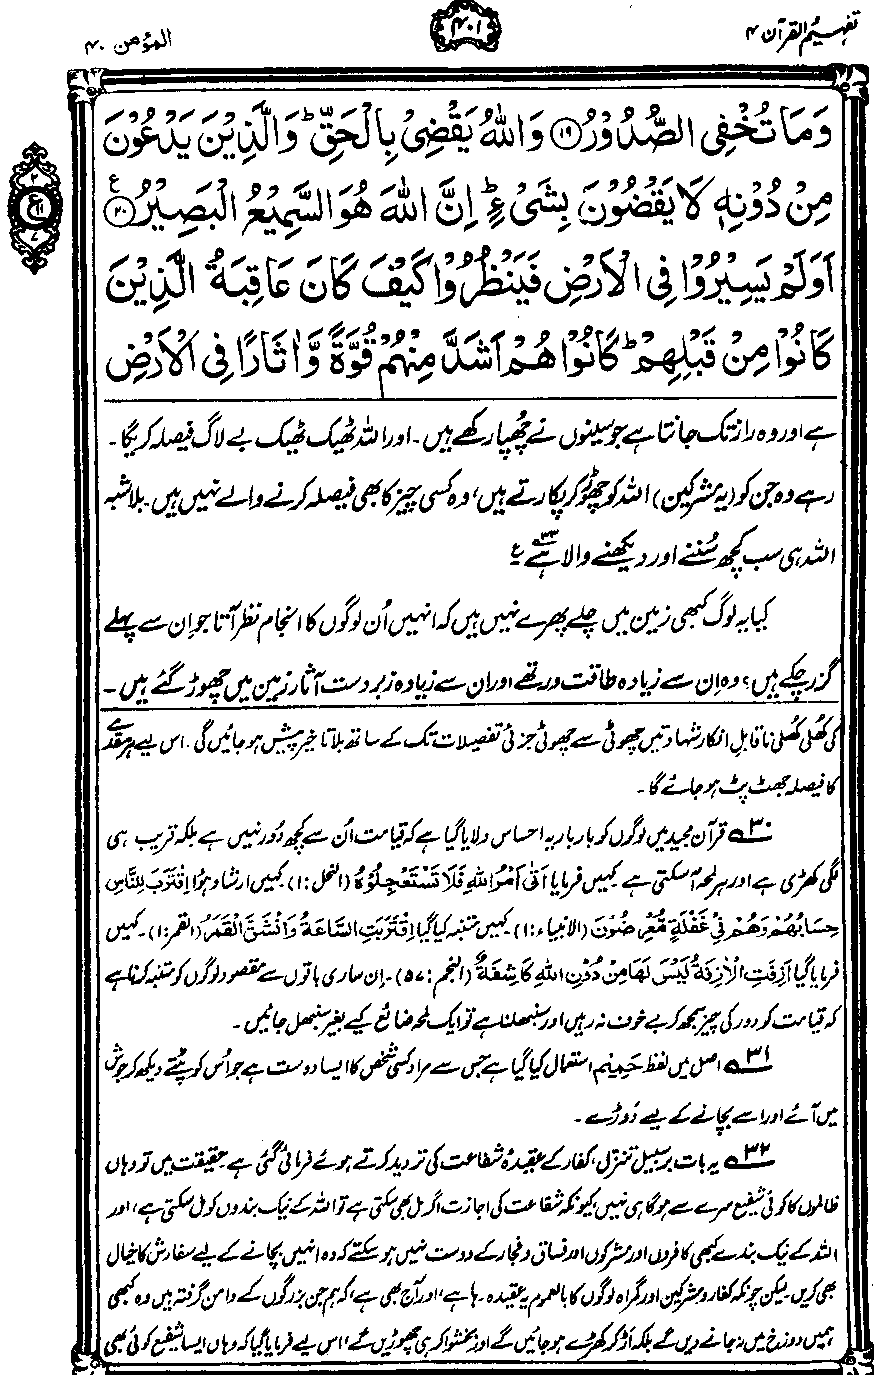 تفہیم القرآن ۴
۴۰۱
المؤمن ۴۰
وَمَا تُخْفِی الصُّدُوْرُ ﴿۱۹﴾ وَاللّٰهُ یَقْضِیْ بِالْحَقِّ ؕ وَالَّذِیْنَ یَدْعُوْنَ
مِنْ دُوْنِهٖ لَا یَقْضُوْنَ بِشَیْءٍ ؕ اِنَّ اللّٰهَ هُوَ السَّمِیْعُ الْبَصِیْرُ ﴿۲۰﴾ ع
اَوَلَمْ یَسِیْرُوْا فِی الْاَرْضِ فَیَنْظُرُوْا كَیْفَ كَانَ عَاقِبَةُ الَّذِیْنَ
كَانُوْا مِنْ قَبْلِهِمْ ؕ كَانُوْا هُمْ اَشَدَّ مِنْهُمْ قُوَّةً وَّاٰثَارًا فِی الْاَرْضِ
ہے اور وہ راز تک جانتا ہے جو سینوں نے چُھپا رکھے ہیں۔ اور اللہ ٹھیک ٹھیک بے لاگ فیصلہ کریگا۔
رہے وہ جن کو (یہ مشرکین) اللہ کو چھوڑ کر پکارتے ہیں، وہ کسی چیز کا بھی فیصلہ کرنے والے نہیں ہیں۔ بلاشبہ
اللہ ہی سب کچھ سُننے اور دیکھنے والا ہے ۳۳ ع
کیا یہ لوگ کبھی زمین میں چلے پھرے نہیں ہیں کہ انہیں اُن لوگوں کا انجام نظر آتا جو اِن سے پہلے
گزر چکے ہیں؟ وہ اِن سے زیادہ طاقت ور تھے اور ان سے زیادہ زبردست آثار زمین میں چھوڑ گئے ہیں۔
کی کُھلی کُھلی ناقابلِ انکار شہادتیں چھوٹی سے چھوٹی جزئی تفصیلات تک کے ساتھ بلا تاخیر پیش ہو جائیں گی۔ اس لیے ہر مقدمے
کا فیصلہ جھٹ پٹ ہو جائے گا۔
۳۰ قرآن مجید میں لوگوں کو بار بار یہ احساس دلایا گیا ہے کہ قیامت اُن سے کچھ دُور نہیں ہے بلکہ قریب ہی
لگی کھڑی ہے اور ہر لمحہ آ سکتی ہے۔ کہیں فرمایا اَتٰۤی اَمْرُ اللّٰهِ فَلَا تَسْتَعْجِلُوْهُ (النحل: ۱)۔ کہیں ارشاد ہوا اِقْتَرَبَ لِلنَّاسِ
حِسَابُهُمْ وَهُمْ فِیْ غَفْلَةٍ مُّعْرِضُوْنَ (الانبیاء: ۱)۔ کہیں متنبہ کیا گیا اِقْتَرَبَتِ السَّاعَةُ وَانْشَقَّ الْقَمَرُ (القمر: ۱)۔ کہیں
فرمایا گیا اَزِفَتِ الْاٰزِفَةُ لَیْسَ لَهَا مِنْ دُوْنِ اللّٰهِ كَاشِفَةٌ (النجم: ۵۷)۔ اِن ساری باتوں سے مقصود لوگوں کو متنبہ کرنا ہے
کہ قیامت کو دور کی چیز سمجھ کر بے خوف نہ رہیں اور سنبھلنا ہے تو ایک لمحہ ضائع کیے بغیر سنبھل جائیں۔
۳۱ اصل میں لفظ حَمِیْم استعمال کیا گیا ہے جس سے مراد کسی شخص کا ایسا دوست ہے جو اُس کو پٹتے دیکھ کر جوش
میں آئے اور اسے بچانے کے لیے دَوڑے۔
۳۲ یہ بات برسبیلِ تنزّل، کفار کے عقیدۂ شفاعت کی تردید کرتے ہوئے فرمائی گئی ہے۔ حقیقت میں تو وہاں
ظالموں کا کوئی شفیع سرے سے ہوگا ہی نہیں، کیونکہ شفاعت کی اجازت اگر مل بھی سکتی ہے تو اللہ کے نیک بندوں کو مل سکتی ہے، اور
اللہ کے نیک بندے کبھی کافروں اور مشرکوں اور فساق و فجار کے دوست نہیں ہو سکتے کہ وہ انہیں بچانے کے لیے سفارش کا خیال
بھی کریں۔ لیکن چونکہ کفار و مشرکین اور گمراہ لوگوں کا بالعموم یہ عقیدہ رہا ہے، اور آج بھی ہے، کہ ہم جن بزرگوں کے دامن گرفتہ ہیں وہ کبھی
ہمیں دوزخ میں نہ جانے دیں گے بلکہ اَڑ کر کھڑے ہو جائیں گے اور بخشوا کر ہی چھوڑیں گے، اس لیے فرمایا گیا کہ وہاں ایسا شفیع کوئی بھی